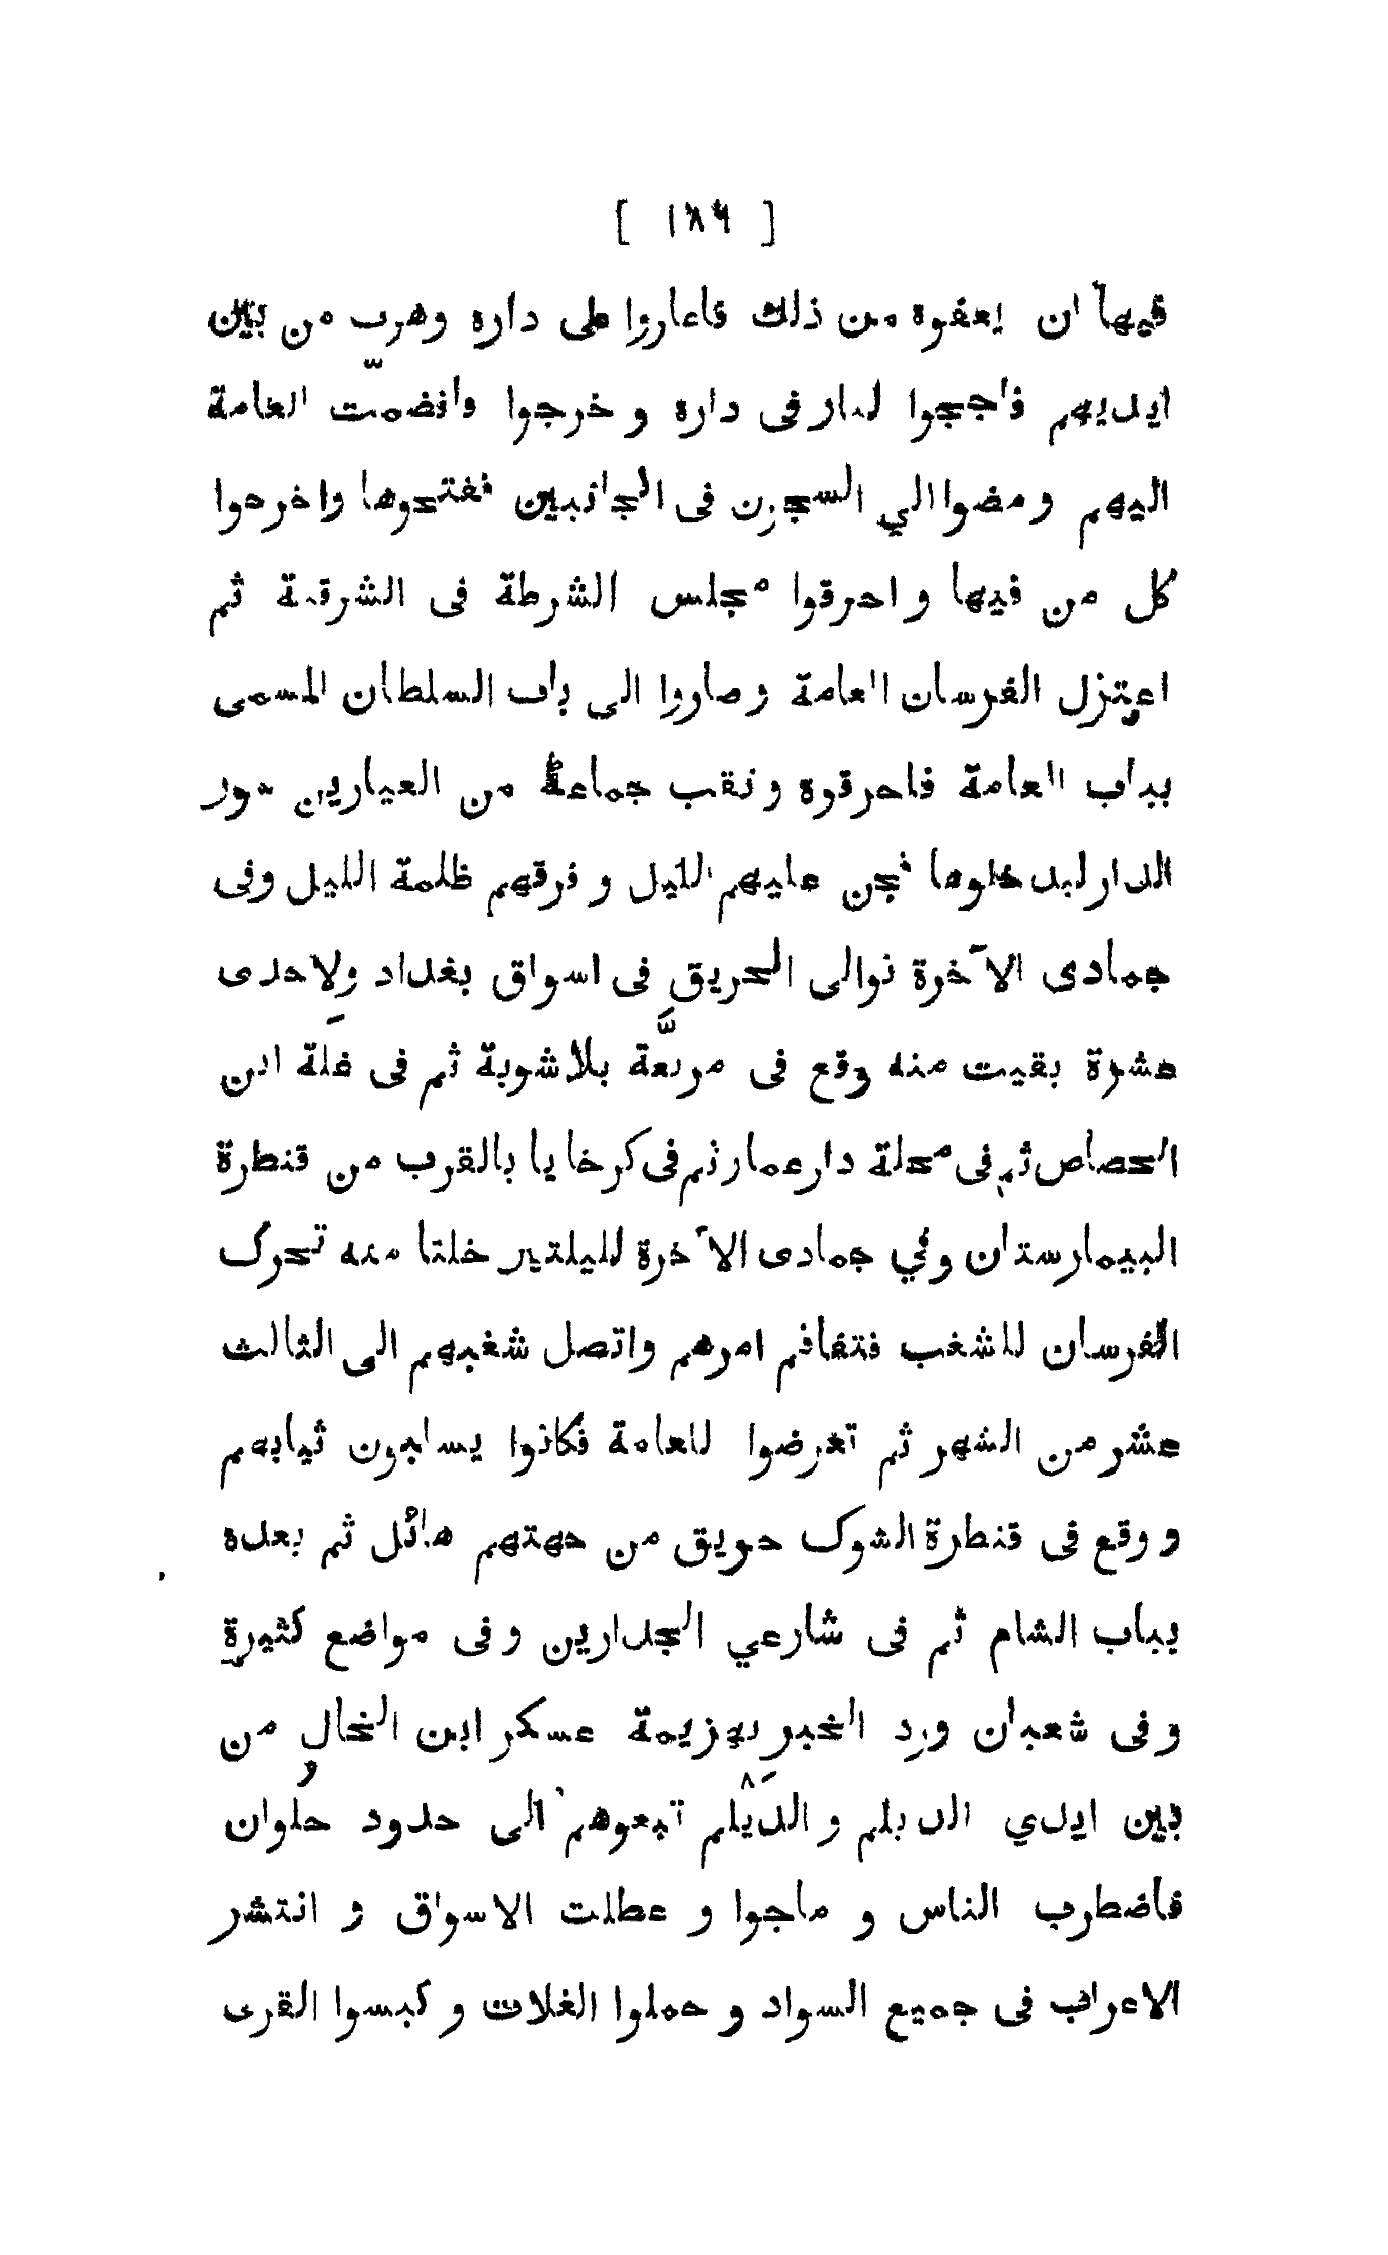 [ ١٨٩ ]
فيها ان يعفوه من ذلك فاغاروا على داره وهرب من بين
ايديهم فاججوا لنار فى داره و خرجوا وانضمّت العامة
اليهم ومضوا الي السجون فى الجانبين ففتحوها واخرجوا
كل من فيها و احرقوا مجلس الشرطة فى الشرقية ثم
اعتزل الفرسان العامة وصاروا الى باب السلطان المسمى
بباب العامة فاحرقوه ونقب جماعة من العيارين سور
الدار ليدخلوها فجن عليهم الليل و فرقهم ظلمة الليل وفى
جمادى الآخرة توالى الحريق فى اسواق بغداد ولاحدى
عشرة بقيت منه وقع فى مربّعة بلاشوبة ثم فى غلة ابن
الحصاص ثم فى محلة دار عمار ثم فى كرخايا بالقرب من قنطرة
البيمارستان وفي جمادى الآخرة لليلتين خلتا منه تحرك
الفرسان للشغب فتفاقم امرهم واتصل شغبهم الى الثالث
عشر من الشهر ثم تعرضوا للعامة فكانوا يسلبون ثيابهم
ووقع فى قنطرة الشوك حريق من جهتهم هائل ثم بعده
بباب الشام ثم فى شارعي الجدارين وفى مواضع كثيرة
وفى شعبان ورد الخبر بهزيمة عسكر ابن الخال من
بين ايدي الديلم و الديلم تبعوهم الى حدود حلوان
فاضطرب الناس و ماجوا و عطلت الاسواق و انتشر
الاعراب فى جميع السواد و حملوا الغلات و كبسوا القرى